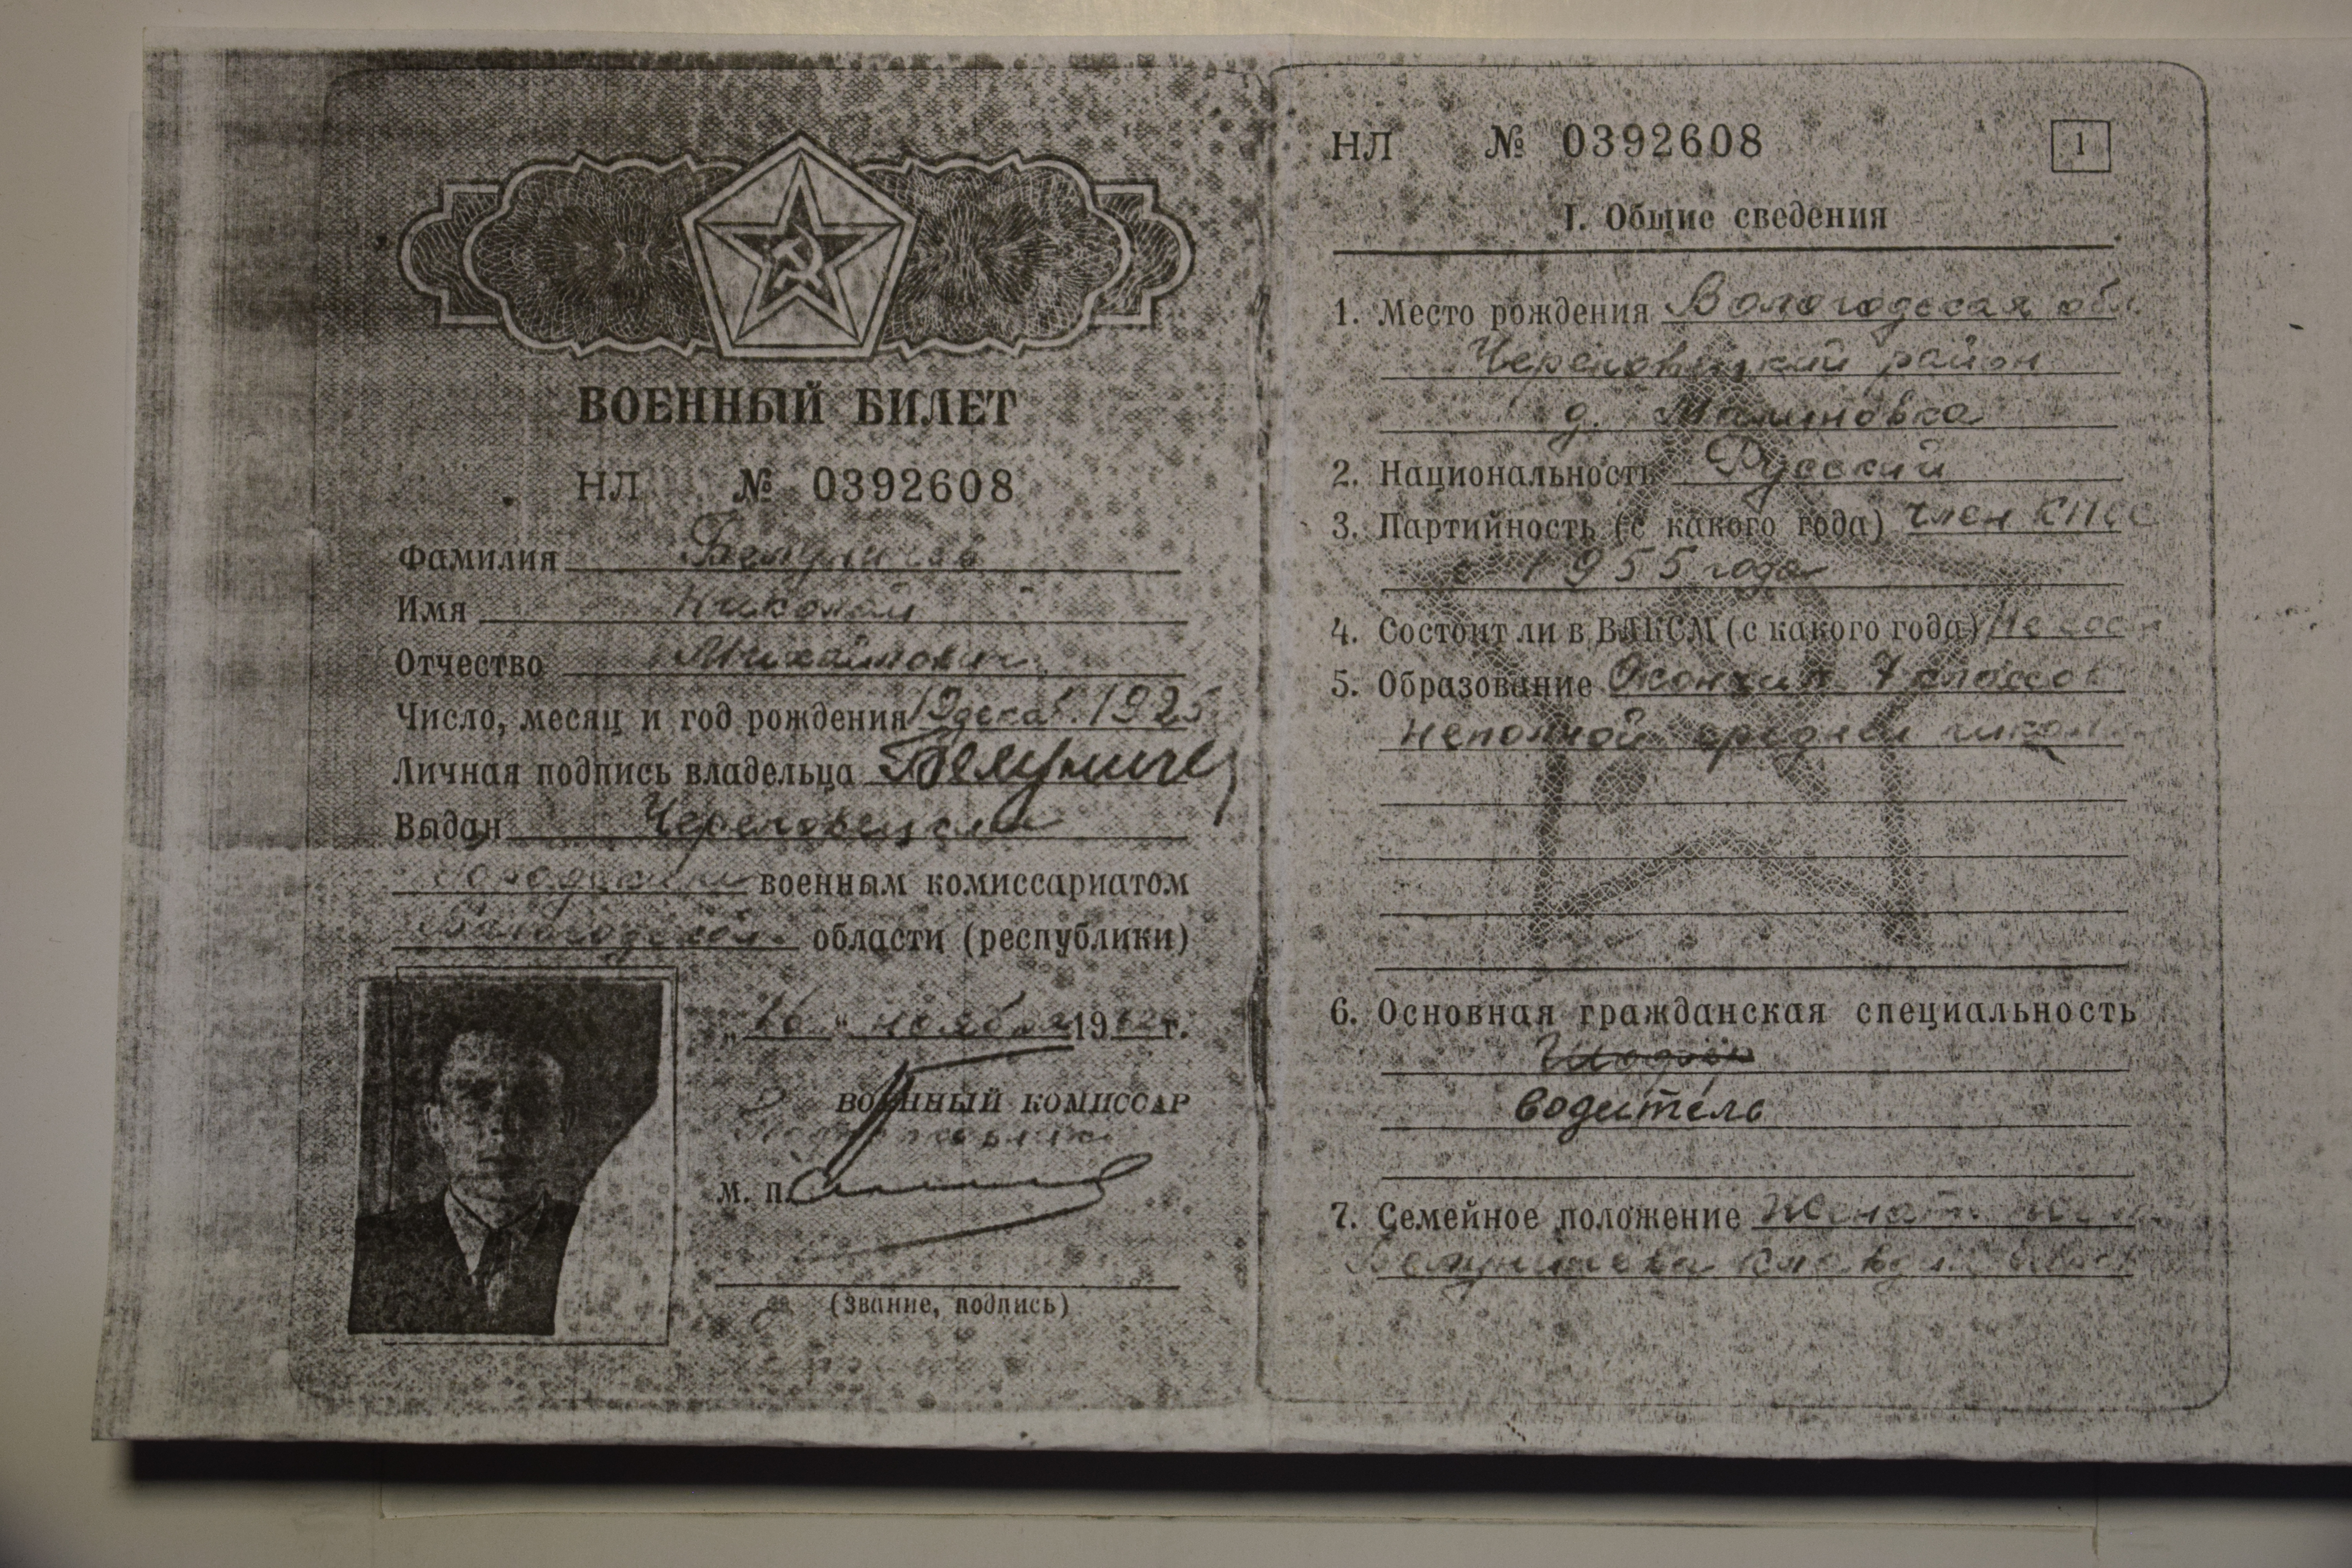 ВОЕННЫЙ БИЛЕТ
НЛ № 0392608
Фамилия
Имя Николай
Отчество Михайлович
Число, месяц и год рождения 19 декаб. 1925
Личная подпись владельца
Выдан Череповецким
городским военным комиссариатом
Вологодской области (республики)
ноября 19 г.
ВОЕННЫЙ КОМИССАР
М. П.
(Звание, подпись)
НЛ № 0392608
1
I. Общие сведения
1. Место рождения Вологодская обл.
Череповецкий район
д. Малиновка
2. Национальность Русский
3. Партийность (с какого года) член КПСС
с 1955 года
4. Состоит ли в ВЛКСМ (с какого года) Не
5. Образование Окончил 7 классов
неполной средней
6. Основная гражданская специальность
водитель
7. Семейное положение Женат